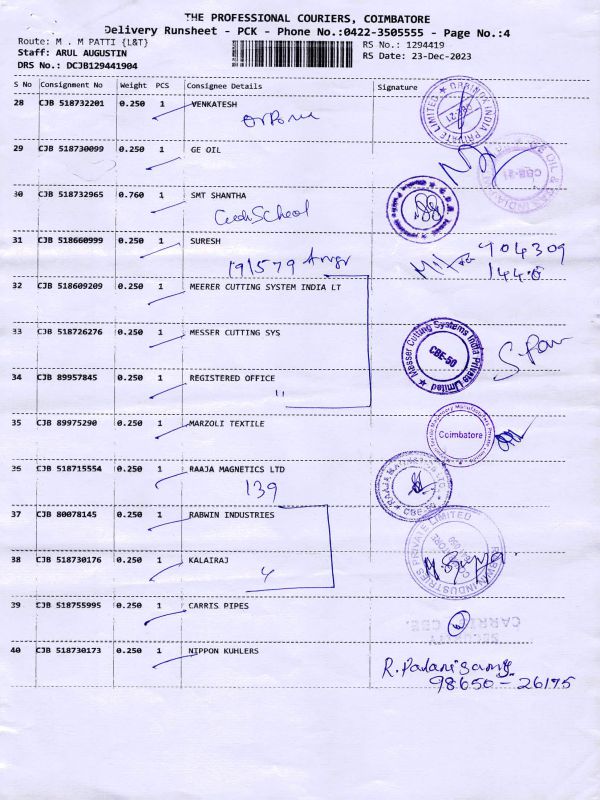 THE PROFESSIONAL COURIERS, COIMBATORE
Delivery Runsheet - PCK - Phone No.:0422-3505555 - Page No.:4
Route: M . M PATTI {L&T}
Staff: ARUL AUGUSTIN
DRS No.: DCJB129441904
RS No.: 1294419
RS Date: 23-Dec-2023
S No Consignment No Weight PCS Consignee Details Signature
28 CJB 518732201 0.250 1 VENKATESH
29 CJB 518730099 0.250 1 GE OIL
30 CJB 518732965 0.760 1 SMT SHANTHA
31 CJB 518660999 0.250 1 SURESH
191579
904309
32 CJB 518609209 0.250 1 MEERER CUTTING SYSTEM INDIA LT
33 CJB 518726276 0.250 1 MESSER CUTTING SYS
Messer Cutting Systems India Private Limited
CBE-50
34 CJB 89957845 0.250 1 REGISTERED OFFICE
"
35 CJB 89975290 0.250 1 MARZOLI TEXTILE
Coimbatore
36 CJB 518715554 0.250 1 RAAJA MAGNETICS LTD
139
37 CJB 80078145 0.250 1 RABWIN INDUSTRIES
38 CJB 518730176 0.250 1 KALAIRAJ
39 CJB 518755995 0.250 1 CARRIS PIPES
40 CJB 518730173 0.250 1 NIPPON KUHLERS
R. Palanisamy
98650-26175